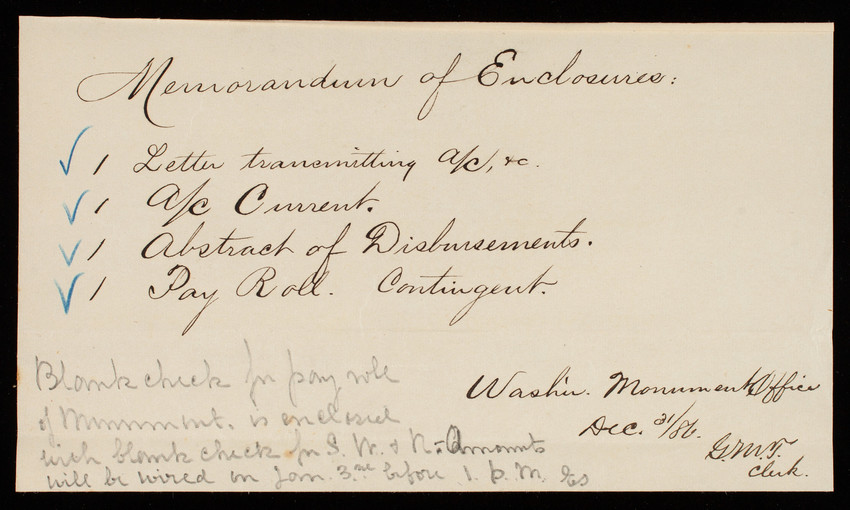 Memorandum of Enclosures:
1 Letter transmitting a/c, &c.
1 A/c Current.
1 Abstract of Disbursements.
1 Pay Roll. Contingent.
Washn. Monument Office
Dec. 31/86.
G.M.T.
Clerk.
Blank check for pay role
of Monument. is enclosed
with blank check for S. W. & N. = Amounts
will be wired on Jan. 3.rd before 1. P. M.